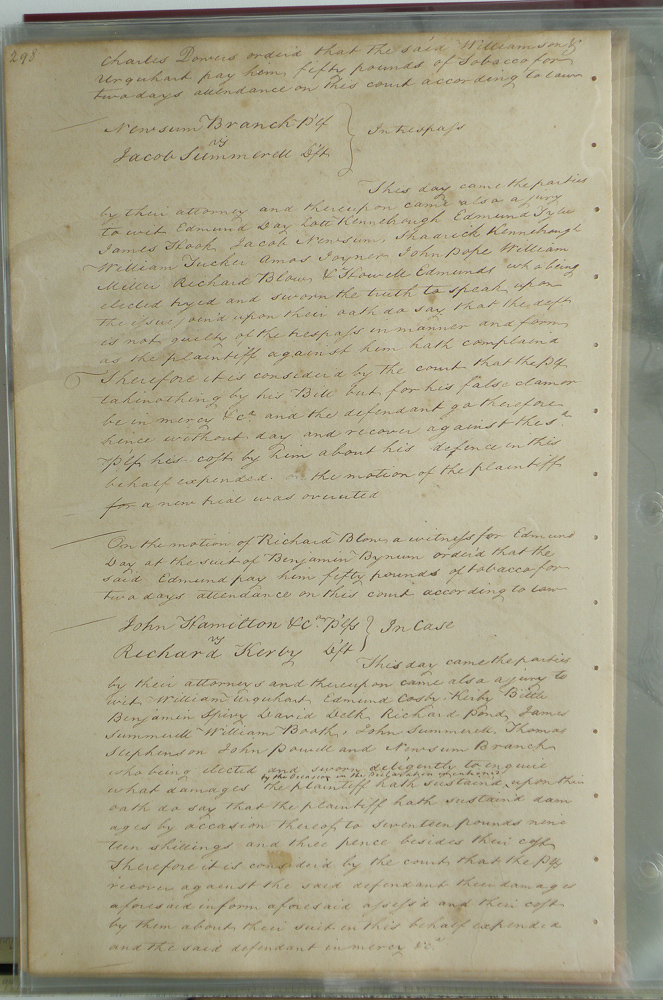 298
Charles Dowers orderd that the said Williamson &
Urquhart pay him fifty pounds of Tobacco for
two days attendance on this court according to law
Newsum Branch Plf
vs
Jacob Summerell Dft
In trespass
This day came the parties
by their attorney and thereupon came also a jury
to wit Edmund Day Lott Kennebrough Edmund Tyler
James Hook Jacob Newsum Shadrick Kennebrough
William Tucker Amos Joyner John Pope William
Miller Richard Blow & Howell Edmunds who being
elected tryed and sworn the truth to speak upon
the issue joind upon their oath do say that the deft
is not guilty of the trespass in manner and form
as the plaintiff against him hath complaind
Therefore it is considerd by the court that the Plf
take nothing by his Bill but for his false clamor
be in mercy &c and the defendant go therefore
hence without day and recover against the sd
Plf his cost by him about his defence in this
behalf expended. on the motion of the plaintiff
for a new treal was overuled
On the motion of Richard Blow a witness for Edmund
Day at the suit of Benjamin Bynum orderd that the
said Edmund pay him fifty pounds of tobacco for
two days attendance on this court according to law
John Hamilton &Co Plfs
vs
Richard Kerby Dft
In Case
This day came the parties
by their attorneys and thereupon came also a jury to
wit William Urquhart Edmund Cosby Kirby Bittle
Benjamin Spivy David Delk Richard Pond James
Summerell William Booth John Summerell Thomas
Stephenson John Powell and Newsum Branch
who being elected and sworn diligently to enquire
by the occasion in the declaration mentioned
what damages the plaintiff hath sustaind upon their
oath do say that the plaintiff hath sustaind dam
ages by occasion thereof to seventeen pounds nine
teen shillings and three pence besides their cost
Therefore it is considerd by the court that the Plfs
recover against the said defendant their damages
aforesaid in form aforesaid assess'd and their cost
by them about their suit in this behalf expended
and the said defendant in mercy &c